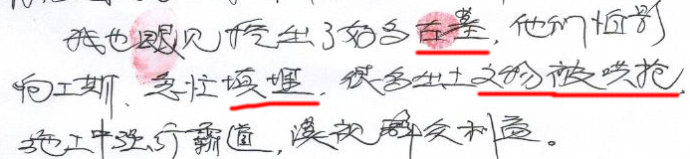 我也眼见挖出了好多古墓，他们怕影
向工期、急忙填埋，很多出土文物被哄抢，
施工中强行霸道，漠视群众利益。